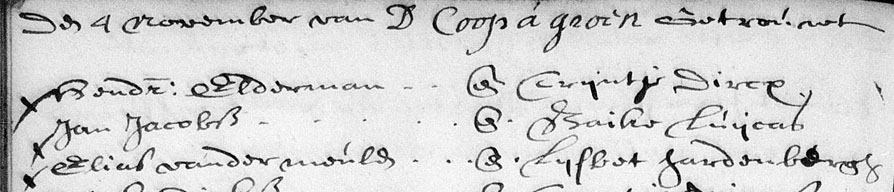 Den 4 november van D Coop á groen Getrouwt
Hendr: Elderman . . & Trijntje Dircx
Jan Jacobsz . . . . . . & Baike Luijcas
Elias vander meulen . . . & Lijsbet hardenbergh